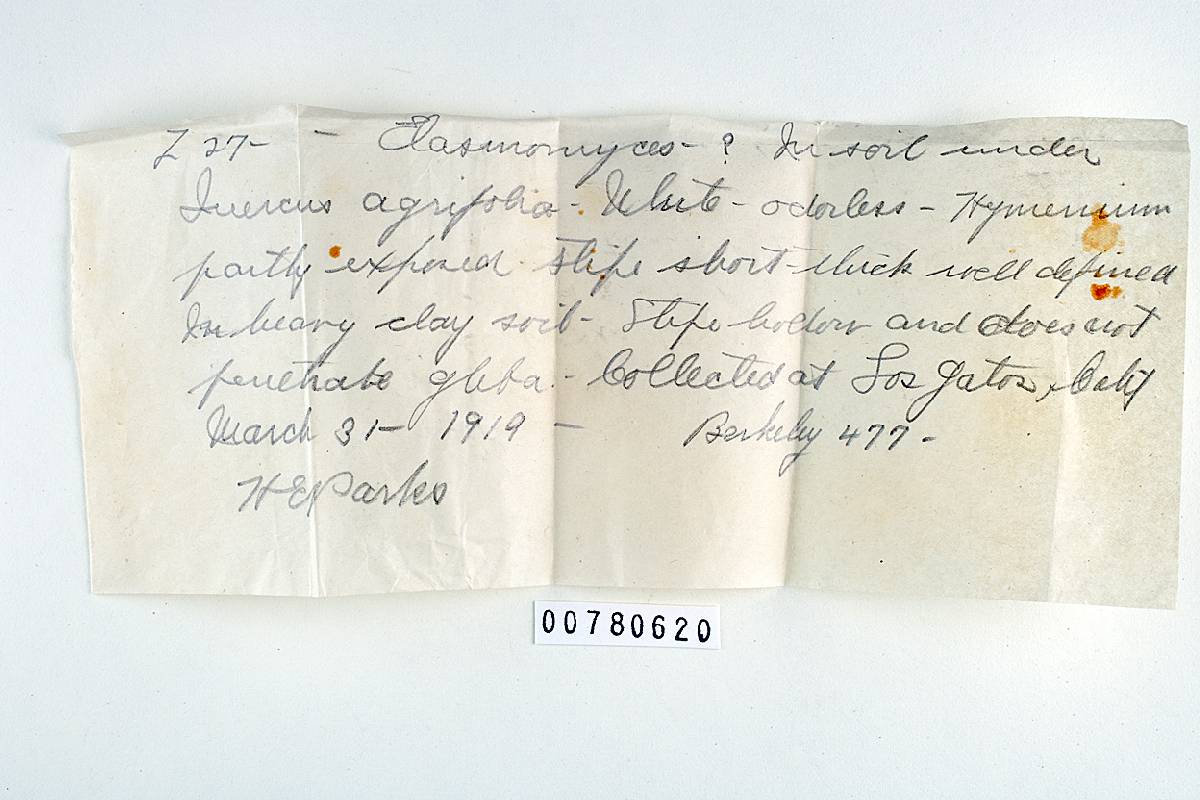 Z 27- - Elasmomyces - ? In soil under
Quercus agrifolia - White - odorless - Hymenium
partly exposed. Stipe short-thick well defined
In heavy clay soil - Stipe hollow and does not
penetrate gleba. - Collected at Los Gatos, Calif
March 31 - 1919 - Berkeley 477 -
H E Parks
00780620